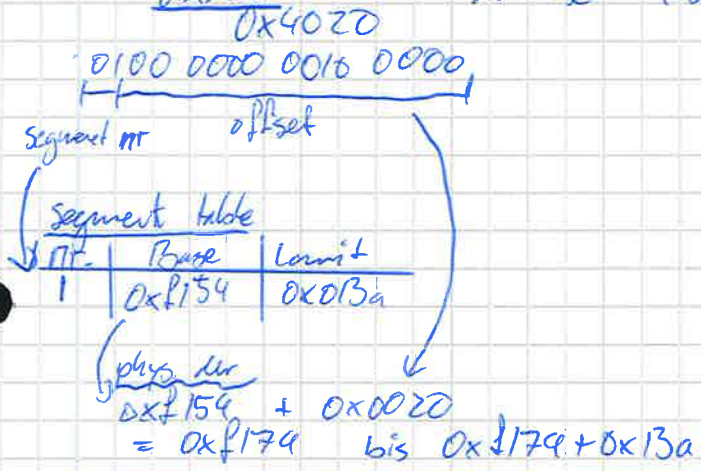 0x4020
0100 0000 0010 0000
segment nr
offset
segment table
nr. Base Limit
1 0xf154 0x013a
phys. adr
0xf154 + 0x0020
= 0xf174 bis 0xf174+0x13a